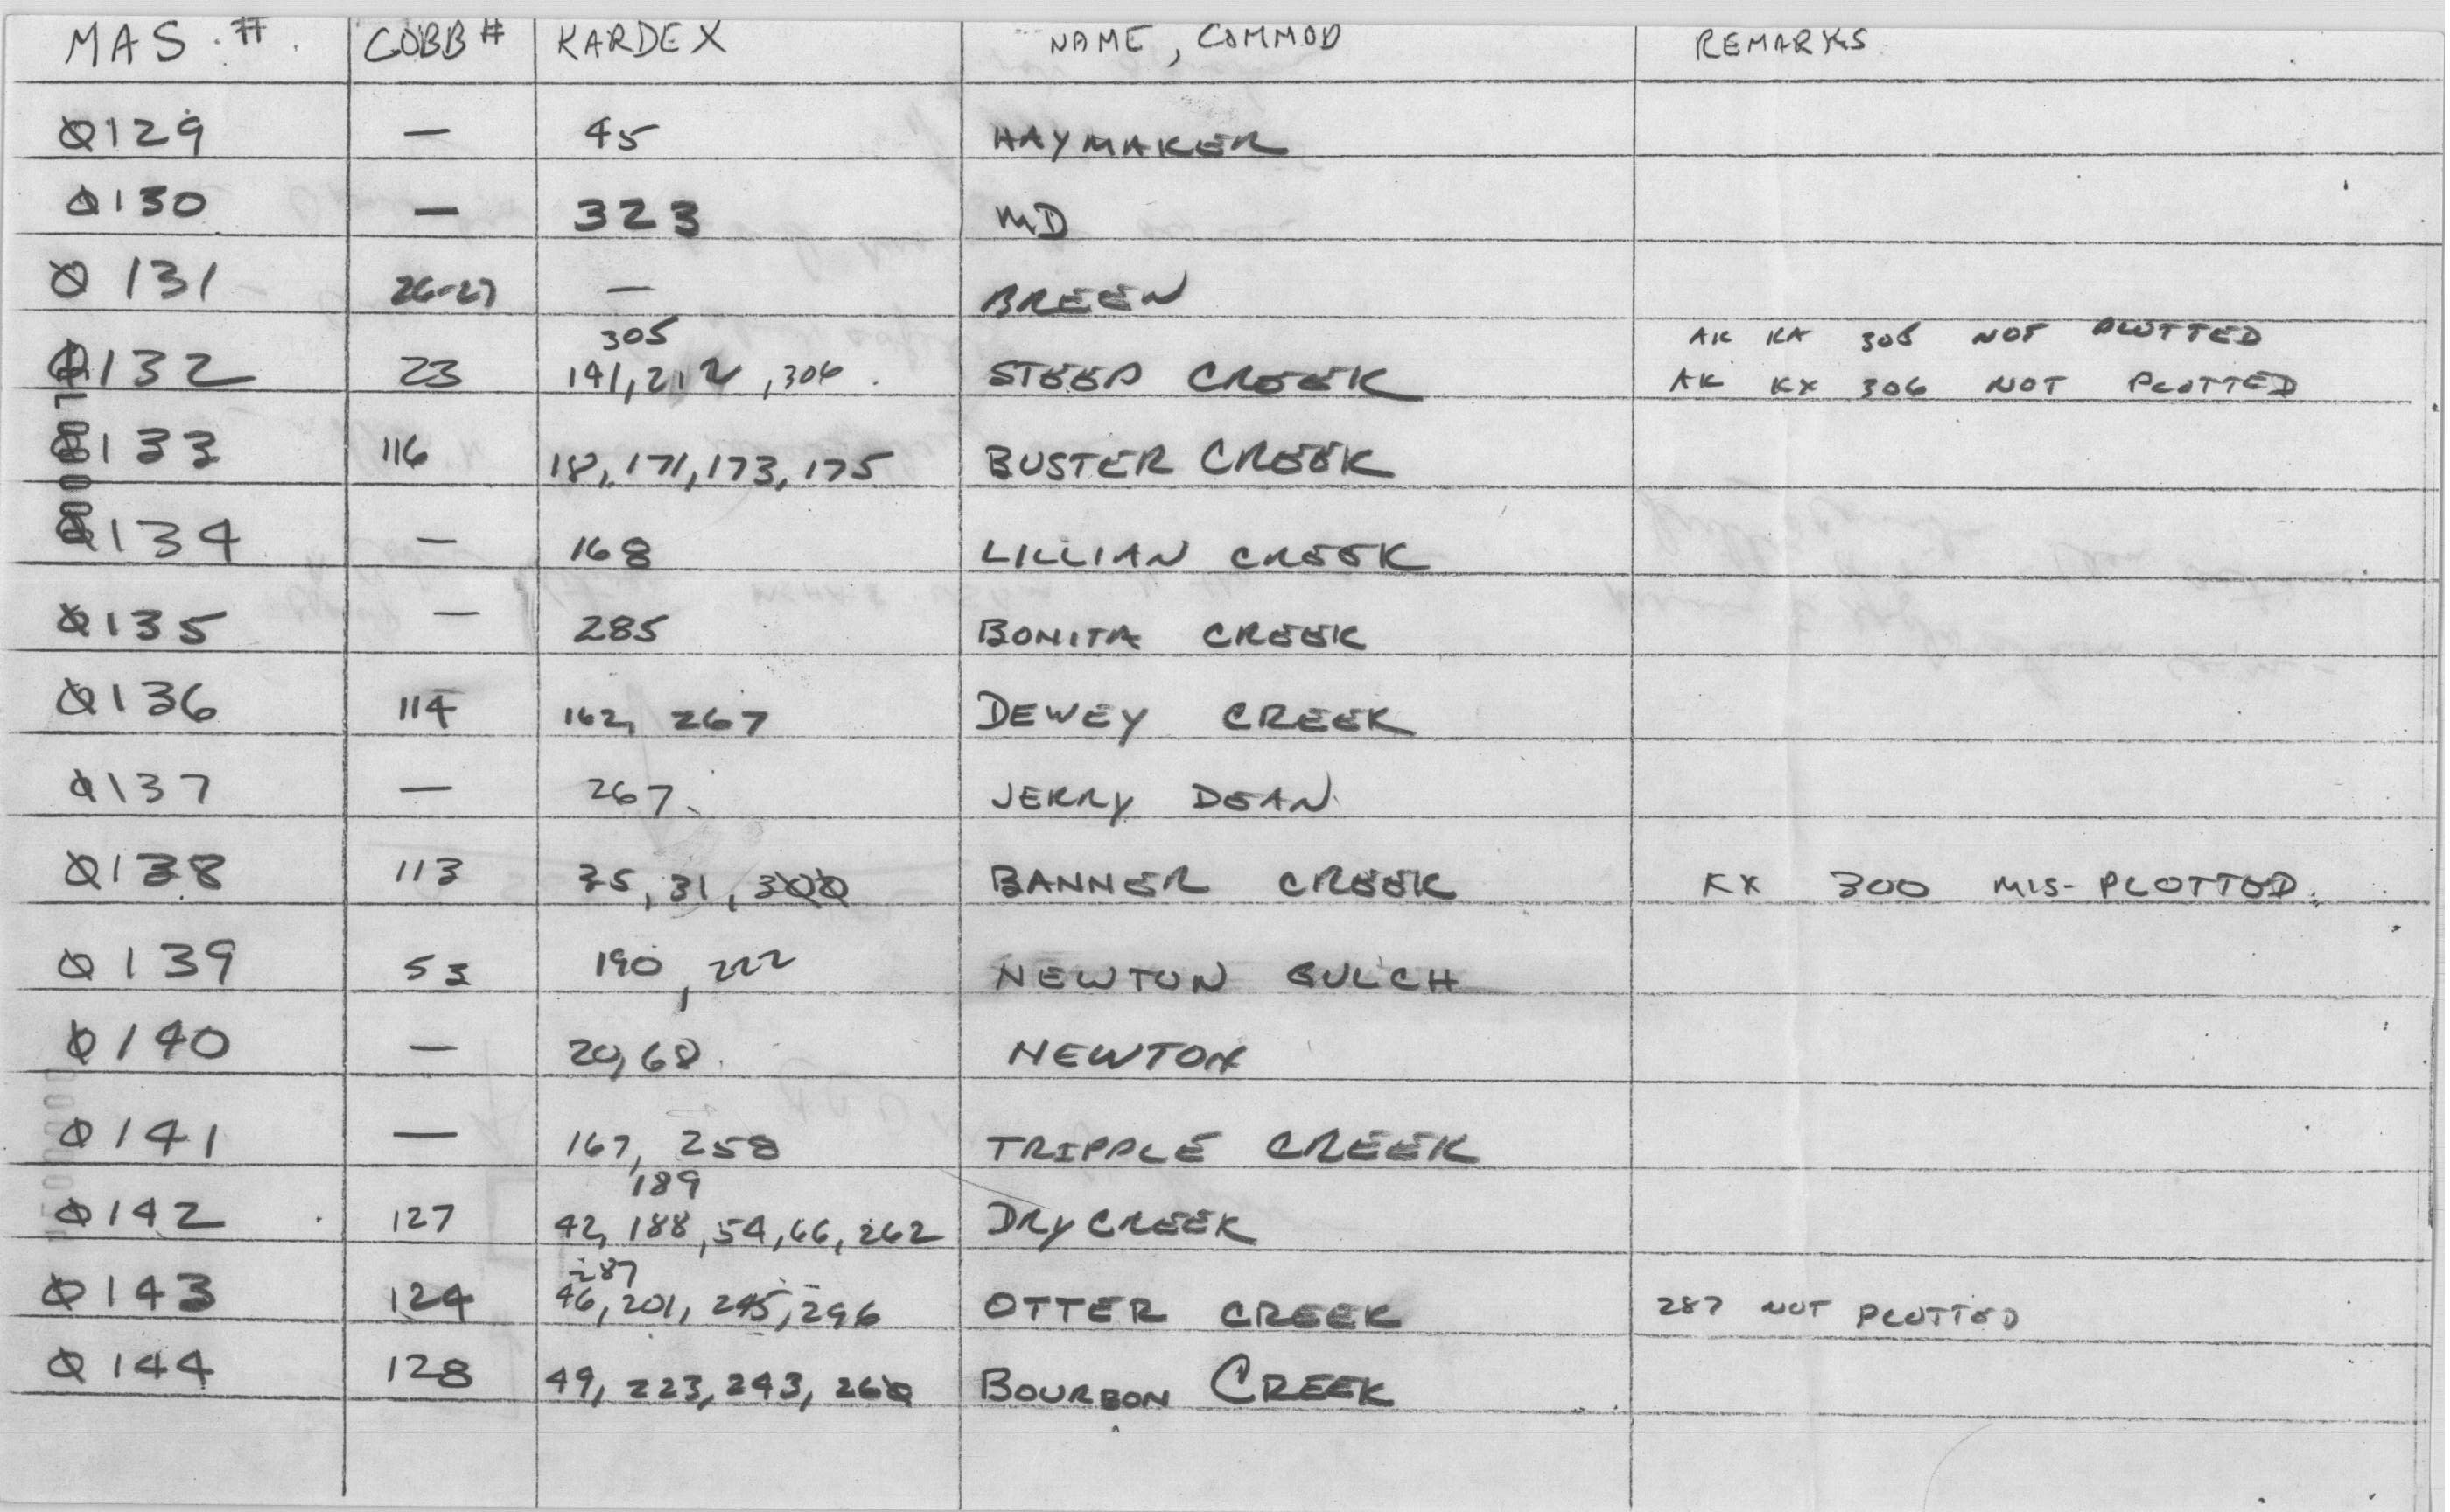 MAS. # COBB # KARDEX NAME, COMMOD REMARKS
0129 — 45 HAYMAKER
0130 — 323 MD
0131 26-27 — BREEN
305 AK KX 305 NOT PLOTTED
0132 23 191, 212, 306. STEEP CREEK AK KX 306 NOT PLOTTED
0133 116 18, 171, 173, 175 BUSTER CREEK
0134 — 168 LILLIAN CREEK
0135 — 285 BONITA CREEK
0136 114 162, 267 DEWEY CREEK
0137 — 267 JERRY DEAN
0138 113 35, 31, 300 BANNER CREEK KX 300 MIS-PLOTTED.
0139 53 190, 222 NEWTON GULCH
0140 — 20, 68 NEWTON
0141 — 167, 258 TRIPPLE CREEK
189
0142 127 42, 188, 54, 66, 262 DRY CREEK
287
0143 124 46, 201, 245, 296 OTTER CREEK 287 NOT PLOTTED
0144 128 49, 223, 243, 260 BOURBON CREEK